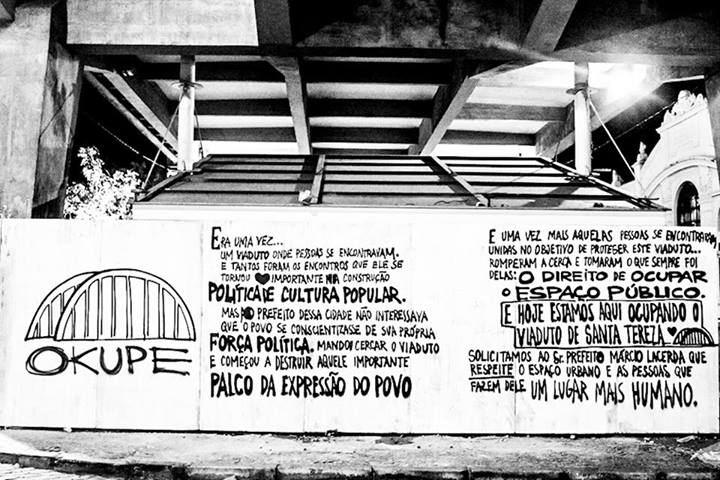 OKUPE
ERA UMA VEZ...
UM VIADUTO ONDE PESSOAS SE ENCONTRAVAM.
E TANTOS FORAM OS ENCONTROS QUE ELE SE
TORNOU IMPORTANTE NA CONSTRUÇÃO
POLÍTICA E DE CULTURA POPULAR.
MAS AO PREFEITO DESSA CIDADE NÃO INTERESSAVA
QUE O POVO SE CONSCIENTIZASSE DE SUA PRÓPRIA
FORÇA POLÍTICA. MANDOU CERCAR O VIADUTO
E COMEÇOU A DESTRUIR AQUELE IMPORTANTE
PALCO DA EXPRESSÃO DO POVO
E UMA VEZ MAIS AQUELAS PESSOAS SE ENCONTRARAM
UNIDAS NO OBJETIVO DE PROTEGER ESTE VIADUTO...
ROMPERAM A CERCA E TOMARAM O QUE SEMPRE FOI
DELAS: O DIREITO DE OCUPAR
O ESPAÇO PÚBLICO.
E HOJE ESTAMOS AQUI OCUPANDO O
VIADUTO DE SANTA TEREZA
SOLICITAMOS AO Sr. PREFEITO MÁRCIO LACERDA QUE
RESPEITE O ESPAÇO URBANO E AS PESSOAS QUE
FAZEM DELE UM LUGAR MAIS HUMANO.